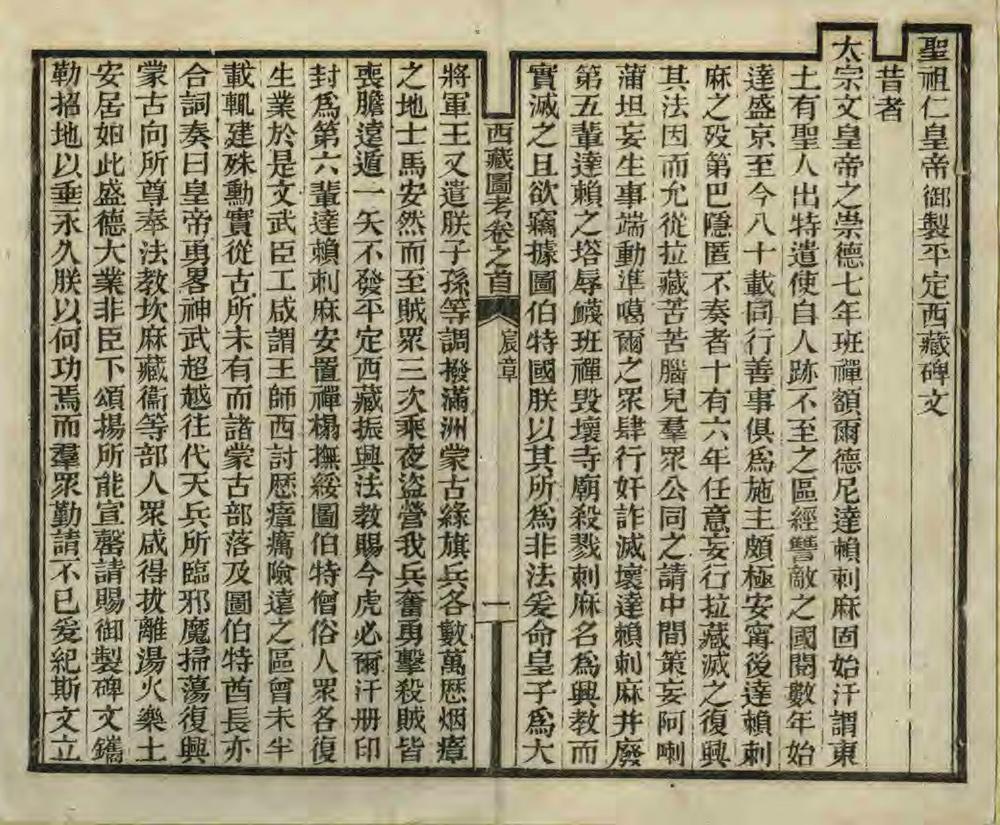 聖祖仁皇帝御製平定西藏碑文
昔者
太宗文皇帝之崇德七年班禪額爾德尼達賴刺麻固始汗謂東
土有聖人出特遣使自人跡不至之區經讐敵之國閱數年始
達盛京至今八十載同行善事俱爲施主頗極安甯後達賴刺
麻之歿第巴隱匿不奏者十有六年任意妄行拉藏滅之復興
其法因而允從拉藏苦苦腦兒羣眾公同之請中間策妄阿喇
蒲坦妄生事端動準噶爾之眾肆行奸詐滅壞達賴刺麻并廢
第五輩達賴之塔辱衊班禪毀壞寺廟殺戮刺麻名爲興教而
實滅之且欲竊據圖伯特國朕以其所爲非法爰命皇子爲大
西藏圖考卷之首
宸章
一
將軍王又遣朕子孫等調撥滿洲蒙古綠旗兵各數萬歷烟瘴
之地士馬安然而至賊眾三次乘夜盜營我兵奮勇擊殺賊皆
喪膽遠遁一矢不發平定西藏振興法教賜今虎必爾汗册印
封爲第六輩達賴刺麻安置禪榻撫綏圖伯特僧俗人眾各復
生業於是文武臣工咸謂王師西討歷瘴癘險遠之區曾未半
載輒建殊勳實從古所未有而諸蒙古部落及圖伯特酋長亦
合詞奏曰皇帝勇畧神武超越往代天兵所臨邪魔掃蕩復興
蒙古向所尊奉法教坎麻藏衞等部人眾咸得拔離湯火樂土
安居如此盛德大業非臣下頌揚所能宣罄請賜御製碑文鐫
勒招地以垂永久朕以何功焉而羣眾勤請不已爰紀斯文立